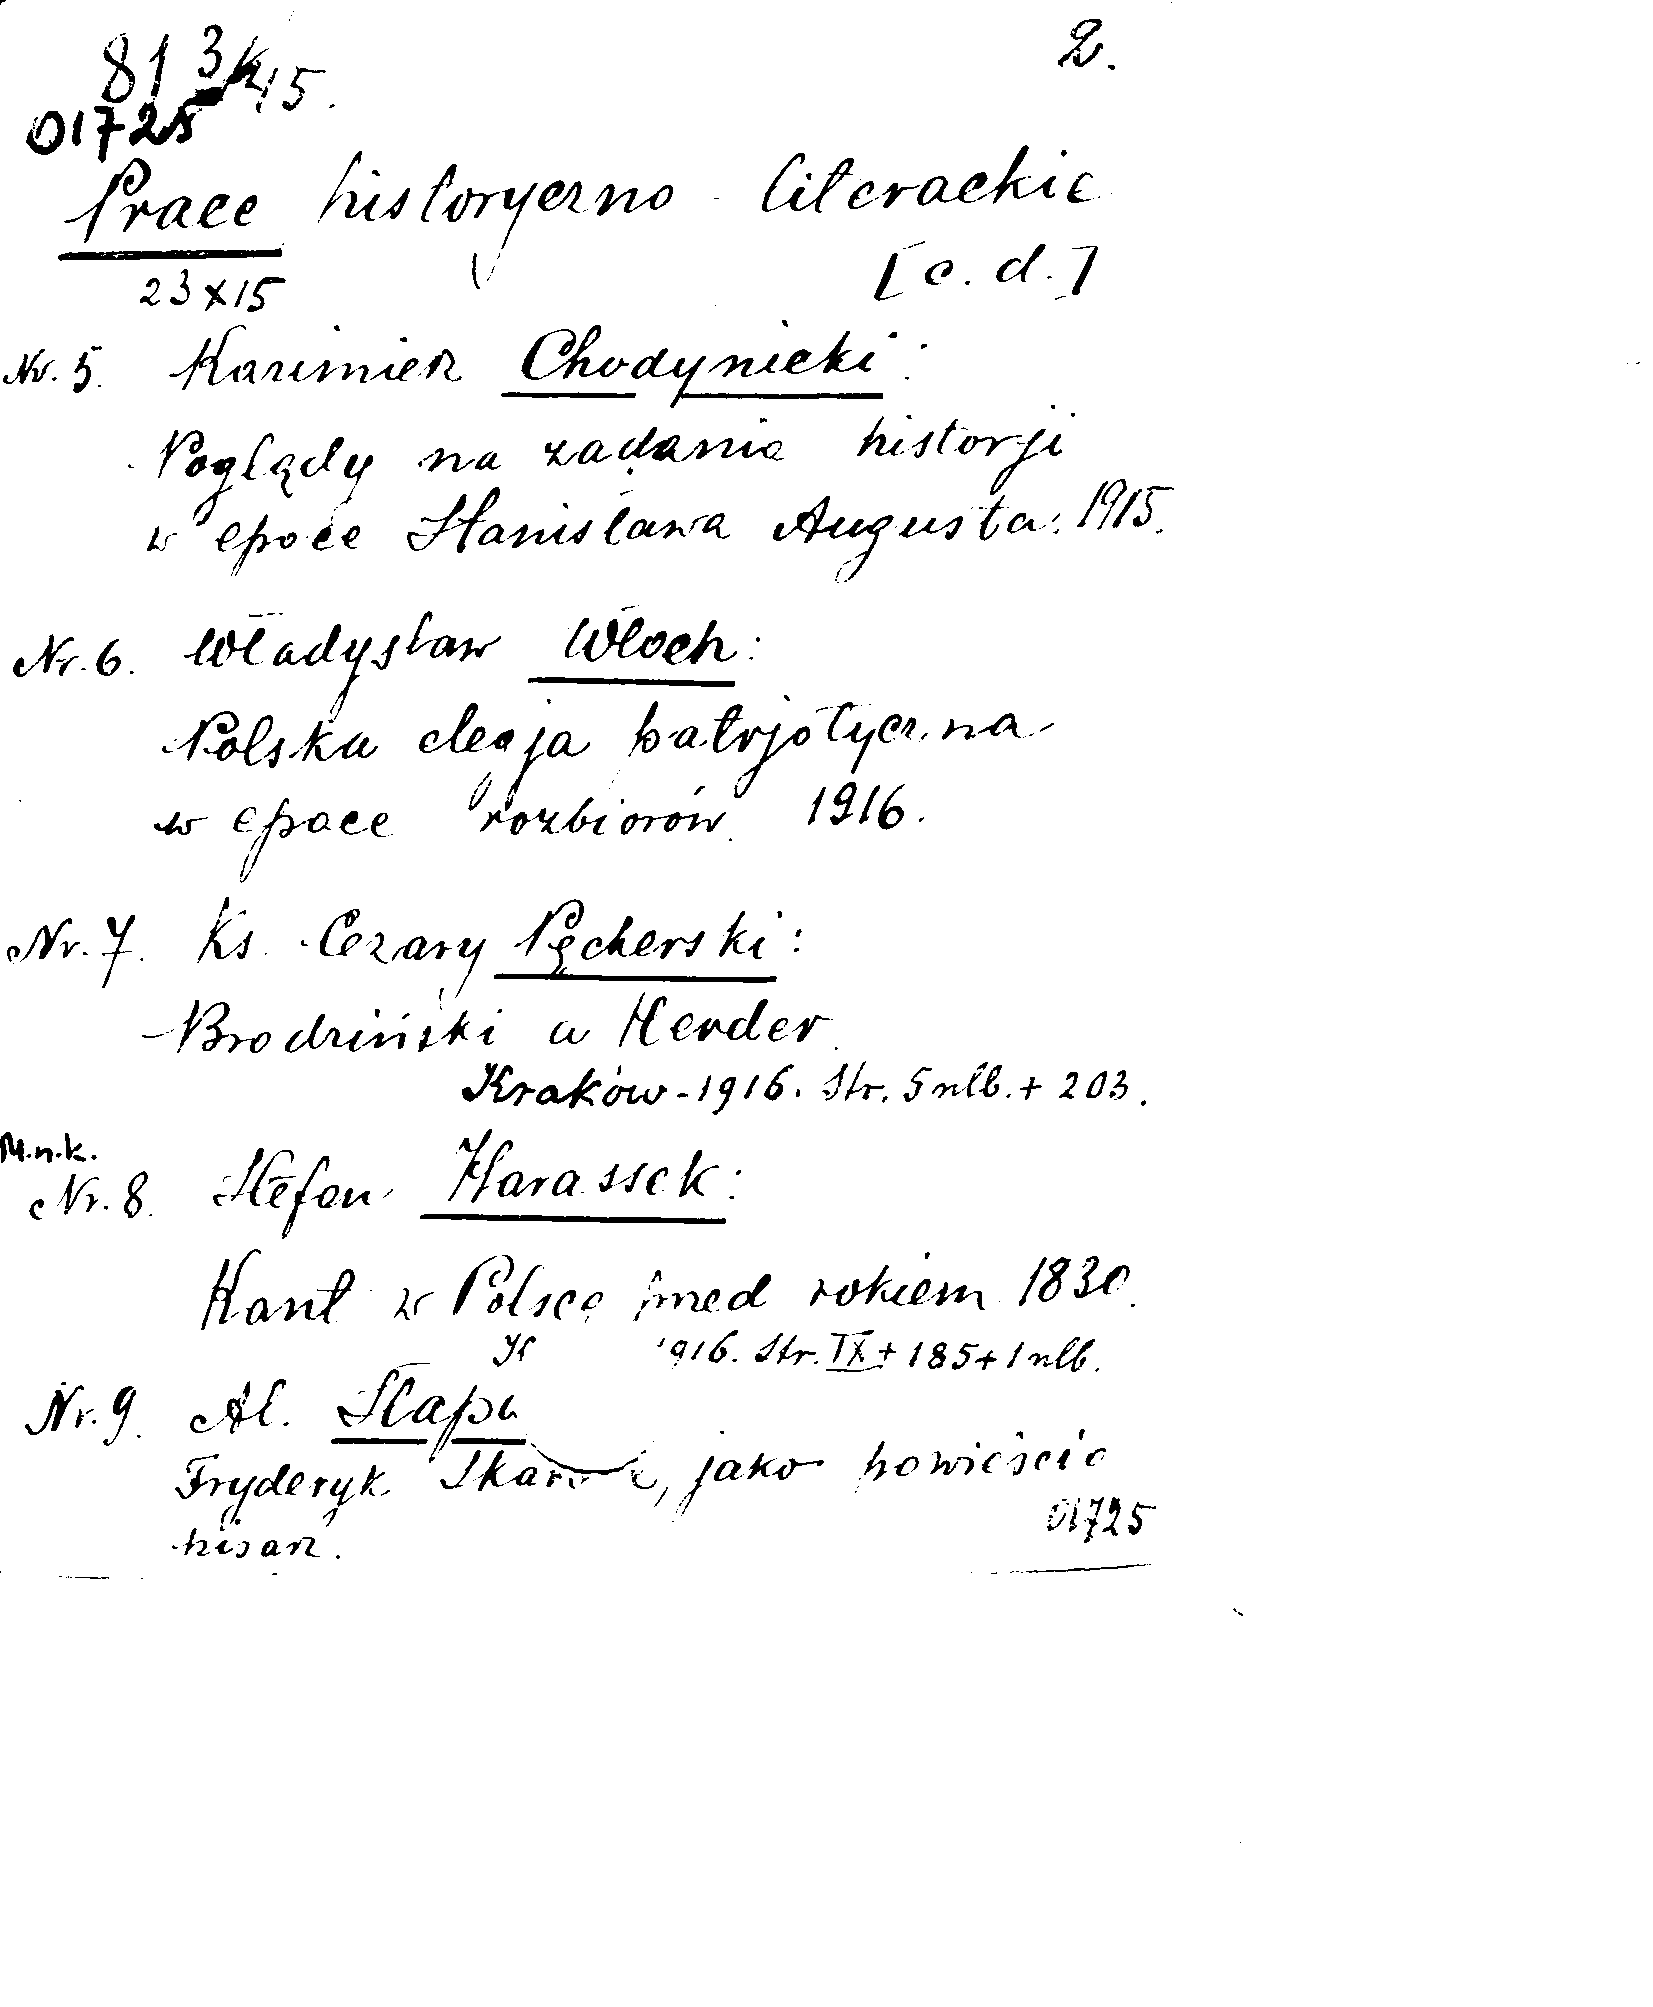 2.
813/k/15.
01725
Prace historyczno-literackie
23x15 [c.d.]
Nr. 5. Kazimierz Chodynicki:
Poglądy na zadania historji
w epoce Stanisława Augusta. 1915.
Nr. 6. Władysław Włoch:
Polska elegja patrjotyczna
w epoce rozbiorów. 1916.
Nr. 7. Ks. Cezary Pęcherski:
Brodziński a Herder.
Kraków-1916. Str. 5 nlb. + 203.
M.n.k.
Nr. 8. Stefan Harassek:
Kant w Polsce przed rokiem 1830.
1916. Str. IX + 185 + 1 nlb.
Nr. 9. Al. Słapa
Fryderyk, jako powieścio
pisarz.
01725